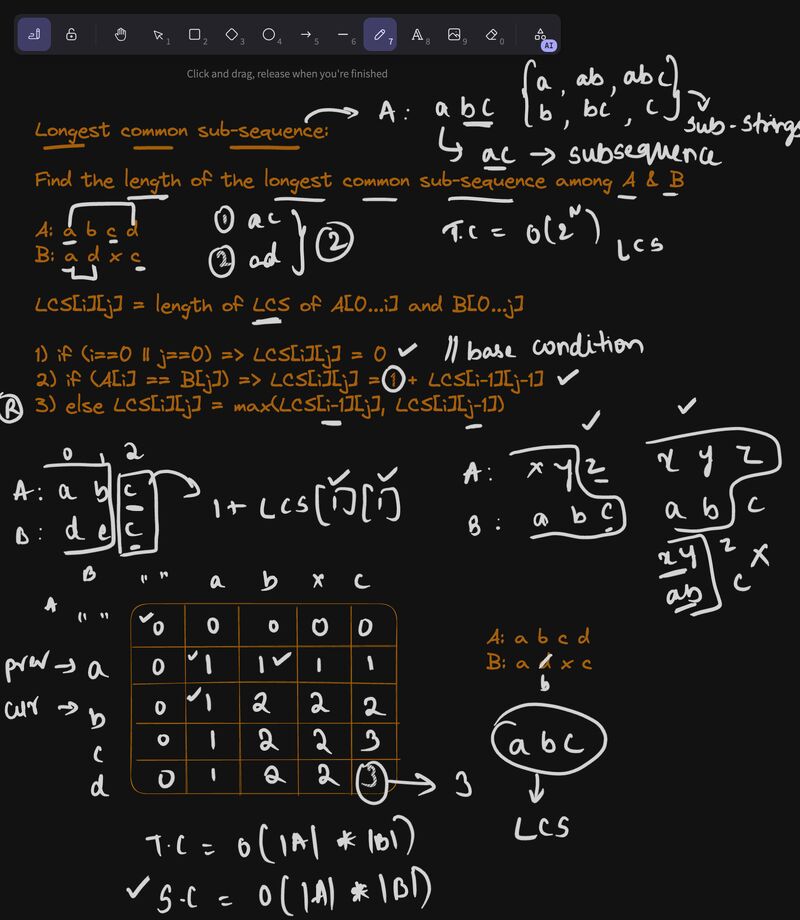 1 2 3 4 5 6 7 8 9 0 AI
Click and drag, release when you're finished
A: abc { a, ab, abc
b, bc, c } → Sub-strings
↳ ac → subsequence
Longest common sub-sequence:
Find the length of the longest common sub-sequence among A & B
A: a b c d
B: a d x c
① ac
② ad
②
T.C = O(2^N)
LCS
LCS[i][j] = length of LCS of A[0...i] and B[0...j]
1) if (i==0 || j==0) => LCS[i][j] = 0 ✓ // base condition
2) if (A[i] == B[j]) => LCS[i][j] = 1 + LCS[i-1][j-1] ✓
R 3) else LCS[i][j] = max(LCS[i-1][j], LCS[i][j-1])
0 1 2
A: a b c
B: d e c
1 + LCS[1][1]
A: x y z
B: a b c
x y z
a b c
xy z x
ab c
B " " a b x c
A " " 0 0 0 0 0
prev → a 0 1 1 1 1
cur → b 0 1 2 2 2
c 0 1 2 2 3
d 0 1 2 2 3 → 3
A: a b c d
B: a d x c
b
abc
↓
LCS
T.C = O(|A| * |B|)
✓ S.C = O(|A| * |B|)